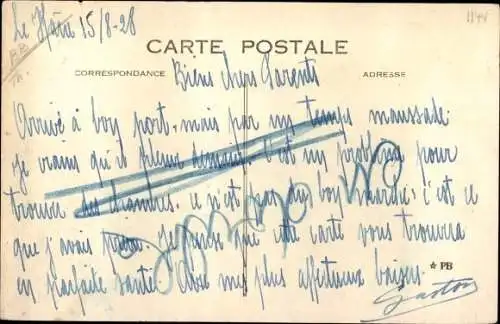 Le Hâvre 15/8-28
CARTE POSTALE
CORRESPONDANCE
ADRESSE
Biens chers Parents
Arrivé à bon port, mais par un temps maussade
Je crains qu'il pleuve demain. C'est un problème pour
trouver des chambres. Ce n'est pas du bon marché; c'est ce
que j'avais prévu. Je pense que cette carte vous trouvera
en parfaite santé. Avec mes plus affectueux baisers
★ PB
Gaston